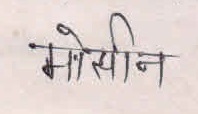 मोसीन